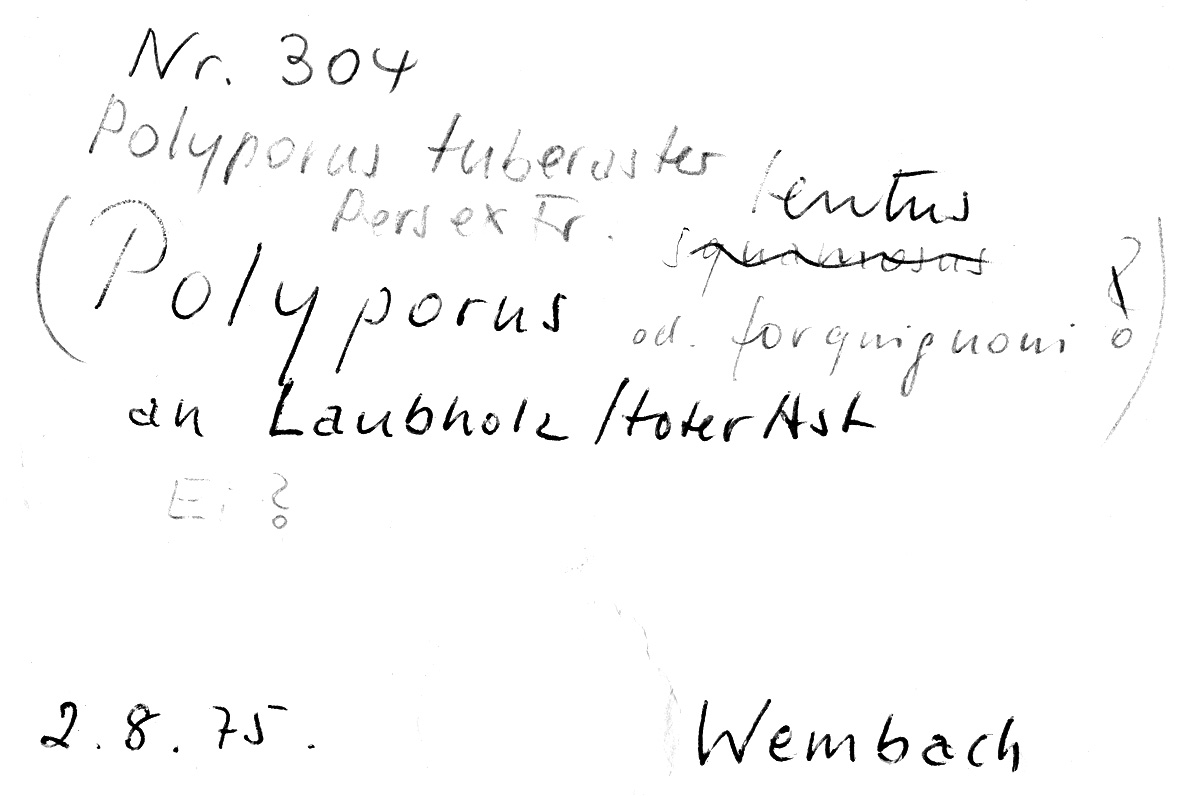 Nr. 304
Polyporus tuberaster
Pers ex Fr.
lentus
squamosus
(Polyporus od. forquignoni ?)
an Laubholz / toter Ast
Ei ?
2.8.75. Wembach